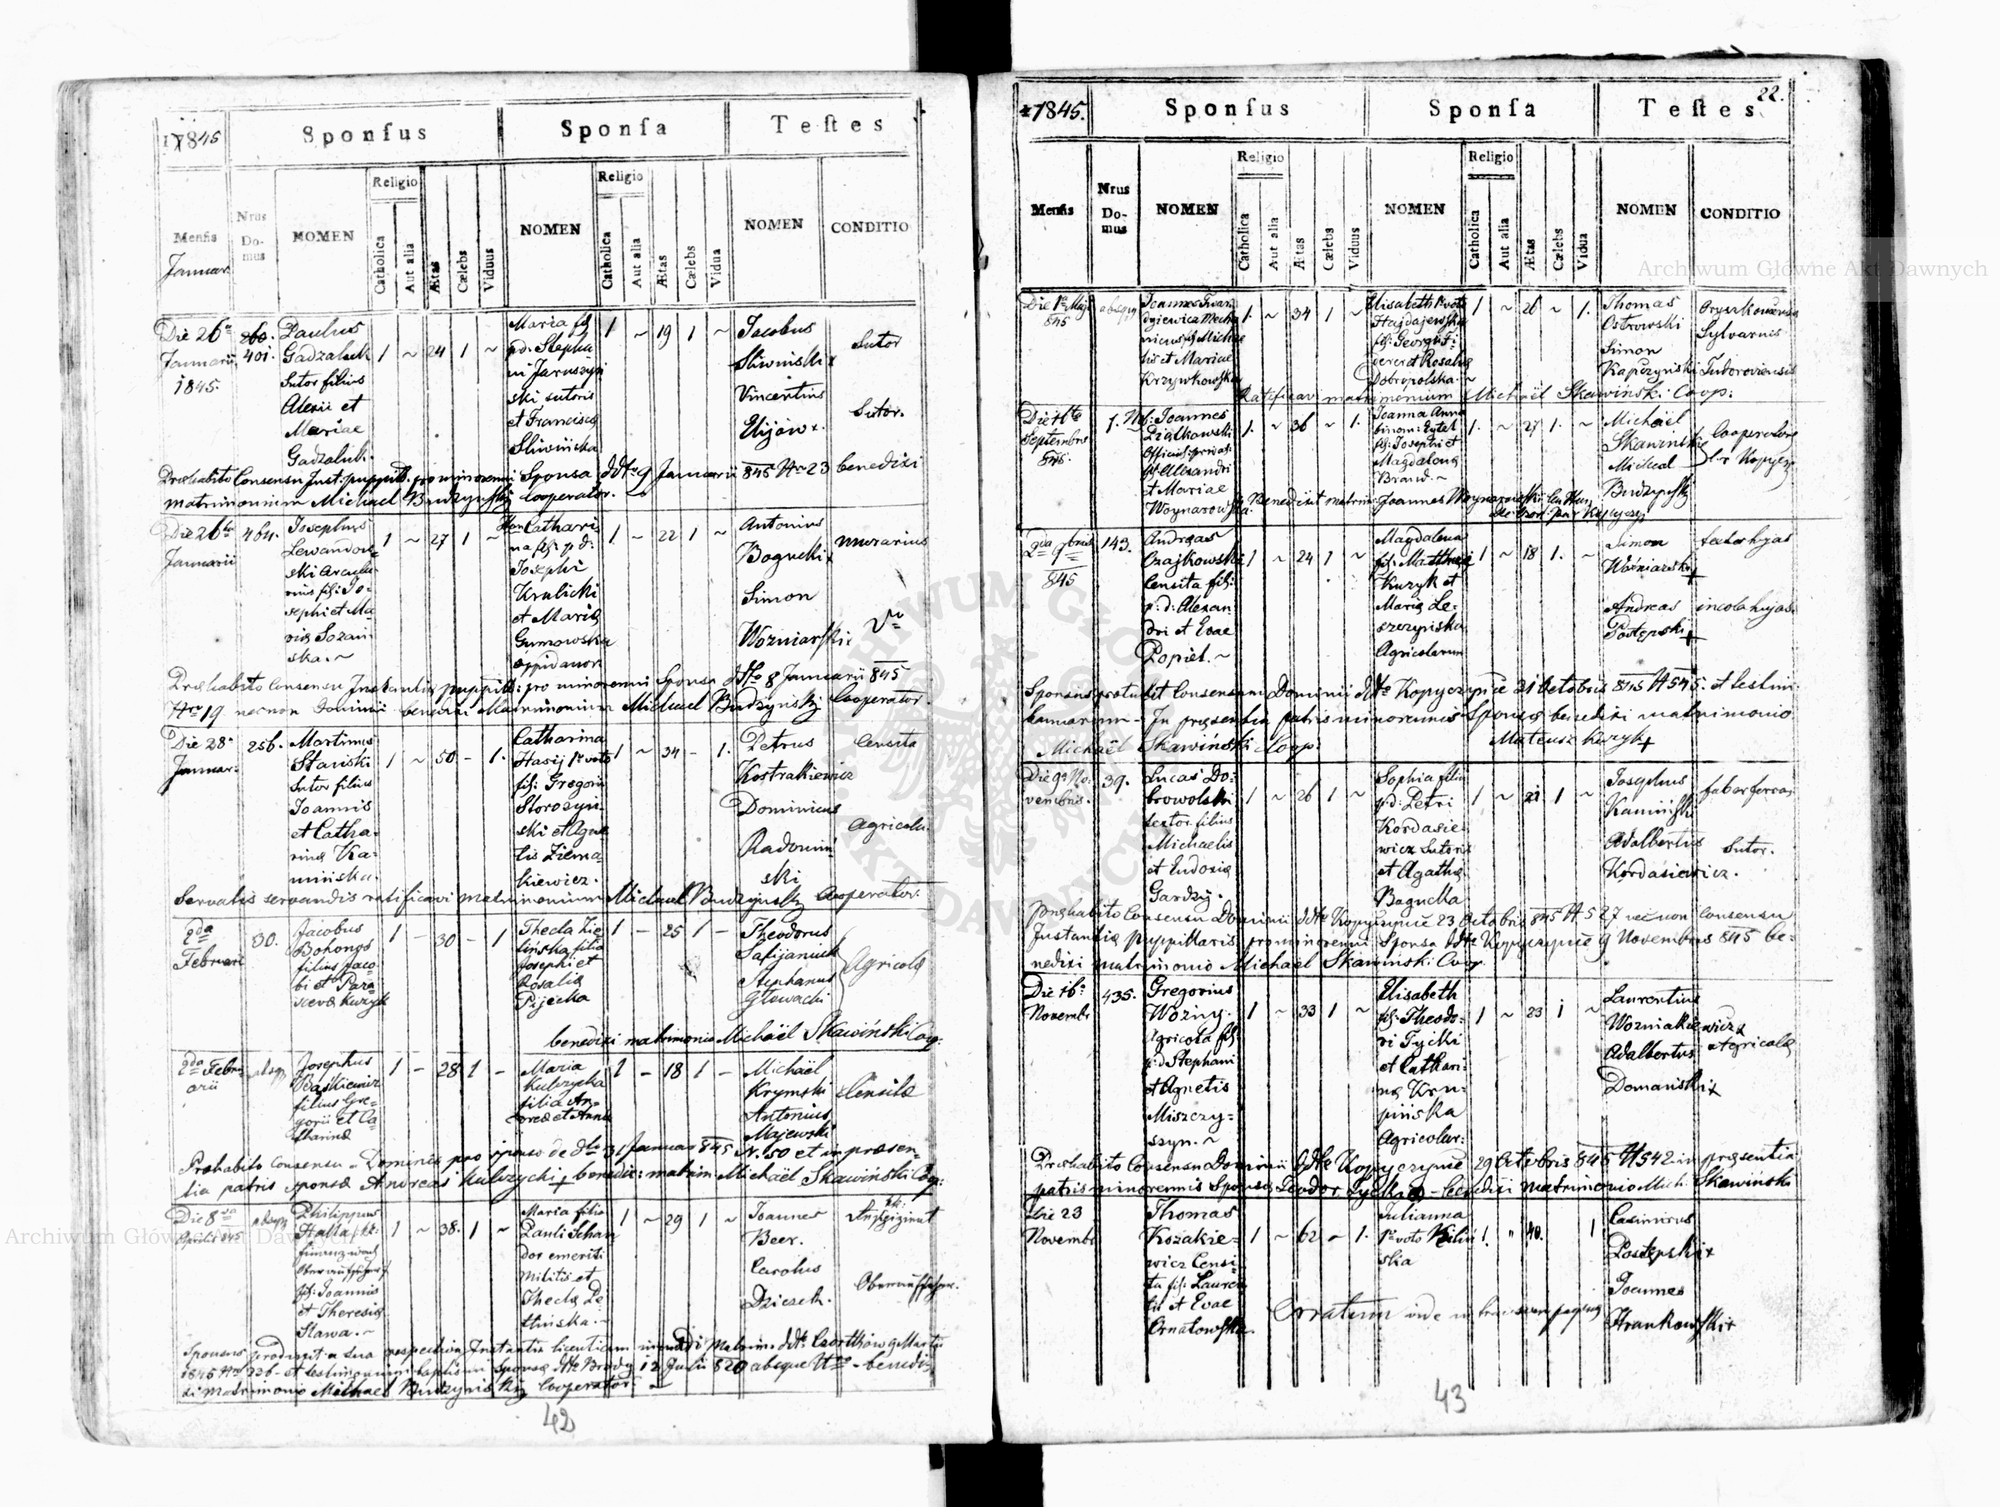 1845
Sponsus
Sponsa
Testes
Mensis
Januar.
Nrus Domus
NOMEN
Religio
Catholica
Aut alia
Ætas
Cælebs
Viduus
NOMEN
Religio
Catholica
Aut alia
Ætas
Cælebs
Vidua
NOMEN
CONDITIO
Die 26
Januarii
1845.
401.
Paulus
Gadzaluk
Sutor filius
Alexii et
Mariae
Gadzaluk.
1 ~ 24 1 ~
Maria
Stepha
ni Jaruszyn
ski sutoris
et Francisca
Sliwińska
1 ~ 19 1 ~
Jacobus
Sliwinski x
Vincentius
Elijów x.
Sutor
Sutor.
Præhabito Consensu Inst. puppill. pro minorenni Sponsa ddto 9 Januarii 845 Nr 23 benedixi
matrimonium Michael Budzynski Cooperator.
Die 26
Januarii
464.
Josephus
Lewandow=
ski
fil: Jo=
sephi et Ma
riæ Sozan
ska. ~
1 ~ 27 1 ~
Cathari
na fil: p: d:
Josephi
Krulicki
et Mariæ
Gumowska
oppidanor
1 ~ 22 1 ~
Antonius
Bogucki x
Simon
Wozniarski x
murarius
Præhabito Consensu Instantiæ puppill: pro minorenni Sponsa ddto 8 Januarii 845
Nro 19 necnon Dominii benedixi Matrimonium Michael Budzynski Cooperator.
Die 28
Januar.
256.
Martinus
Stanski
Sutor filius
Joannis
et Catha
rinæ Ka=
mińska.
1 ~ 50 - 1.
Catharina
Hasij 1o voto
fil: Gregorii
Storozyn
ski et Agne
tis Ziema
kiewicz.
1 ~ 34 - 1.
Petrus
Kostrakiewicz
Dominicus
Radomin
ski
Censita
Agricola.
Servatis servandis ratificavi matrimonium Michael Budzynski Cooperator.
2da
Februarii
30.
Jacobus
filius Jaco
bi et Para
scevæ Kuzyk
1 - 30 - 1
Thecla Zie
lińska filia
Josephi et
Rosaliæ
Pijecka
1 - 25 1 -
Theodorus
Safijaniuk
Stephanus
Głowacki
Agricolæ
benedixi matrimonio Michaël Skawiński Coop:
2da Febru
arii
Josephus
Raskiewicz
filius Gre=
gorii et Ca
tharinæ
1 - 28 1 -
Maria
Kulrzycka
filia An=
dreæ et Annæ
1 - 18 1 -
Michaël
Krymski
Antonius
Majewski
Censitæ
Præhabito Consensu Dominii pro sponso de dto 31 Januar 845 N. 50 et in præsen=
tia patris sponsæ Andreas Kulrzycki + benedix: matrim: Michaël Skawiński Coop:
Die 8va
Aprilis 845
Philippus
Halla
fil: Joannis
et Theresia
Slawa. ~
1 ~ 38. 1 ~
Maria filia
Pauli Schan
dor emeriti
Militis et
Theclæ Ze
lińska. ~
1 ~ 29 1 ~
Joannes
Beer.
Carolus
Dzieseh.
Oberaufseher.
Sponsus produxit a sua respectiva Instantia licentiam ineundi Matrim: ddto Czortków 9 Martii
1845 Nro 226 - et testimonium baptismi sponsæ ddto Brody 12 Julii 820 absque Nro - benedi
xi matrimonio Michael Budzynski Cooperator.
42
22.
1845.
Sponsus
Sponsa
Testes
Mensis
Nrus Domus
NOMEN
Religio
Catholica
Aut alia
Ætas
Cælebs
Viduus
NOMEN
Religio
Catholica
Aut alia
Ætas
Cælebs
Vidua
NOMEN
CONDITIO
Die 1a Maji
845
Joannes
fil: Micha
lis et Mariae
Krzywkowska
1. ~ 34 1 ~
Elisabeth 1o voto
Hajdajewska
fil: Georgii
et Rosaliæ
Dobropolska. ~
1 ~ 26 ~ 1.
Thomas
Ostrowski
Simon
Kapczynski
Sylvanus
Sudoroviensis
Ratificavi matrimonium Michaël Skawiński Coop:
Die 11to
Septembris
845.
1.
Joannes
Piątkowski
fil: Alexandri
et Mariae
Woynarowska.
1. ~ 36 ~ 1.
Joanna Anna
binom: Eytel
fil: Josephi et
Magdalena
Brand. ~
1. ~ 27 1. ~
Michaël
Skawinski
Michael
Budzynski
Cooperatores
Benedixit matrim: Joannes Woynarowski
2da 9bris
845
143.
Andreas
Czajkowski
Censita fil:
p: d: Alexan
dri et Evae
Popiel. ~
1 ~ 24 1 ~
Magdalena
fil: Matthæi
Kuzyk et
Mariæ Le=
szczynska
Agricolarum
1 ~ 18 1. ~
Simon
Wozniarski +
Andreas
Postępski +
incola hujas.
Sponsus protulit Consensum Dominii ddto Kopyczynce 21 Octobris 845 N 545. et testim:
bannorum - In præsentia patris minorennis Sponsæ benedixi matrimonio
Michaël Skawiński Coop:
Mateusz Kuzyk +
Die 9a No=
vembris.
39.
Lucas Do=
browolski
textor filius
Michaelis
et Eudoxiæ
Gardzij.
1 ~ 26 1 ~
Sophia filia
p: d: Petri
Kordasie
wicz Sutoris
et Agathæ
Bogucka
1 ~ 22 1 ~
Josephus
Kaminski
Adalbertus
Kordasiewicz.
faber ferrar.
Sutor.
Præhabito Consensu Dominii ddto Kopyczynce 23 Octobris 845 N. 527 necnon Consensu
Instantiæ puppillaris pro minorenni Sponsa ddto Kopyczynce 9 Novembris 845 be=
nedixi matrimonio Michaël Skawinski Coop
Die 16a
Novembr
435.
Gregorius
Wozny.
Agricola fil:
p: d: Stephani
et Agnetis
Miszczy=
szyn. ~
1 ~ 33 1 ~
Elisabeth
fil: Theodo=
ri Tycki
et Cathari=
næ Kru=
pińska
Agricolar:
1 ~ 23 1 ~
Laurentius
Wozniakiewicz x
Adalbertus
Domański x
Agricolæ
Præhabito Consensu Dominii ddto Kopyczynce 29 Octobris 845 N 542 in præsentia
patris minorennis Sponsæ Teodor Tycki - benedixi matrimonio Mich: Skawiński
Die 23
Novembr
Thomas
Kozakie=
wicz Censi=
ta fil: Lauren
tii et Evae
Ornatowska.
1 ~ 62 ~ 1.
Julianna
1o voto
ska
1. " 40. 1
Casimirus
Postępski x
Joannes
Hrankowski x
Erratum
43
Archiwum Główne Akt Dawnych
Archiwum Główne Akt Dawnych
ARCHIWUM GŁÓWNE AKT DAWNYCH